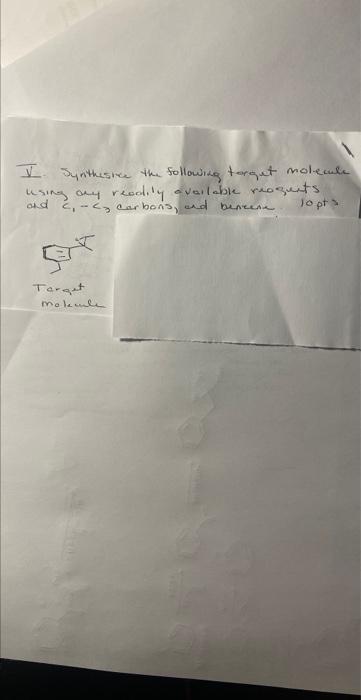 V. Synthesize the following target molecule
using any readily available reagents
and C₁-C₃ carbons, and benzene 10pts
Target
molecule